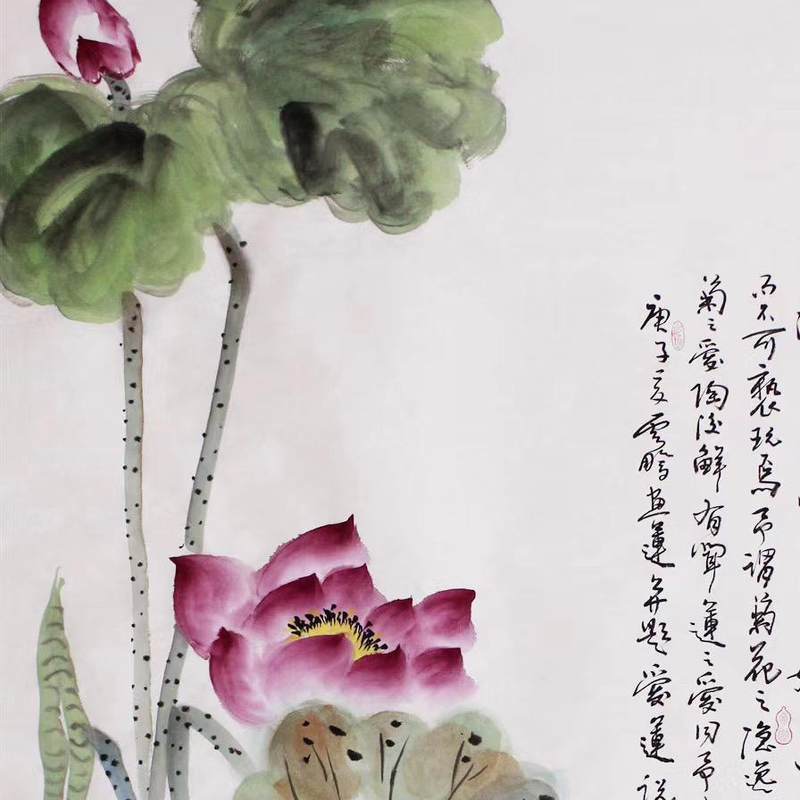 而不可褻玩焉予謂菊花之隐逸
菊之愛陶後鮮有聞蓮之愛同予
庚子夏雲鵬畫蓮并題愛蓮說